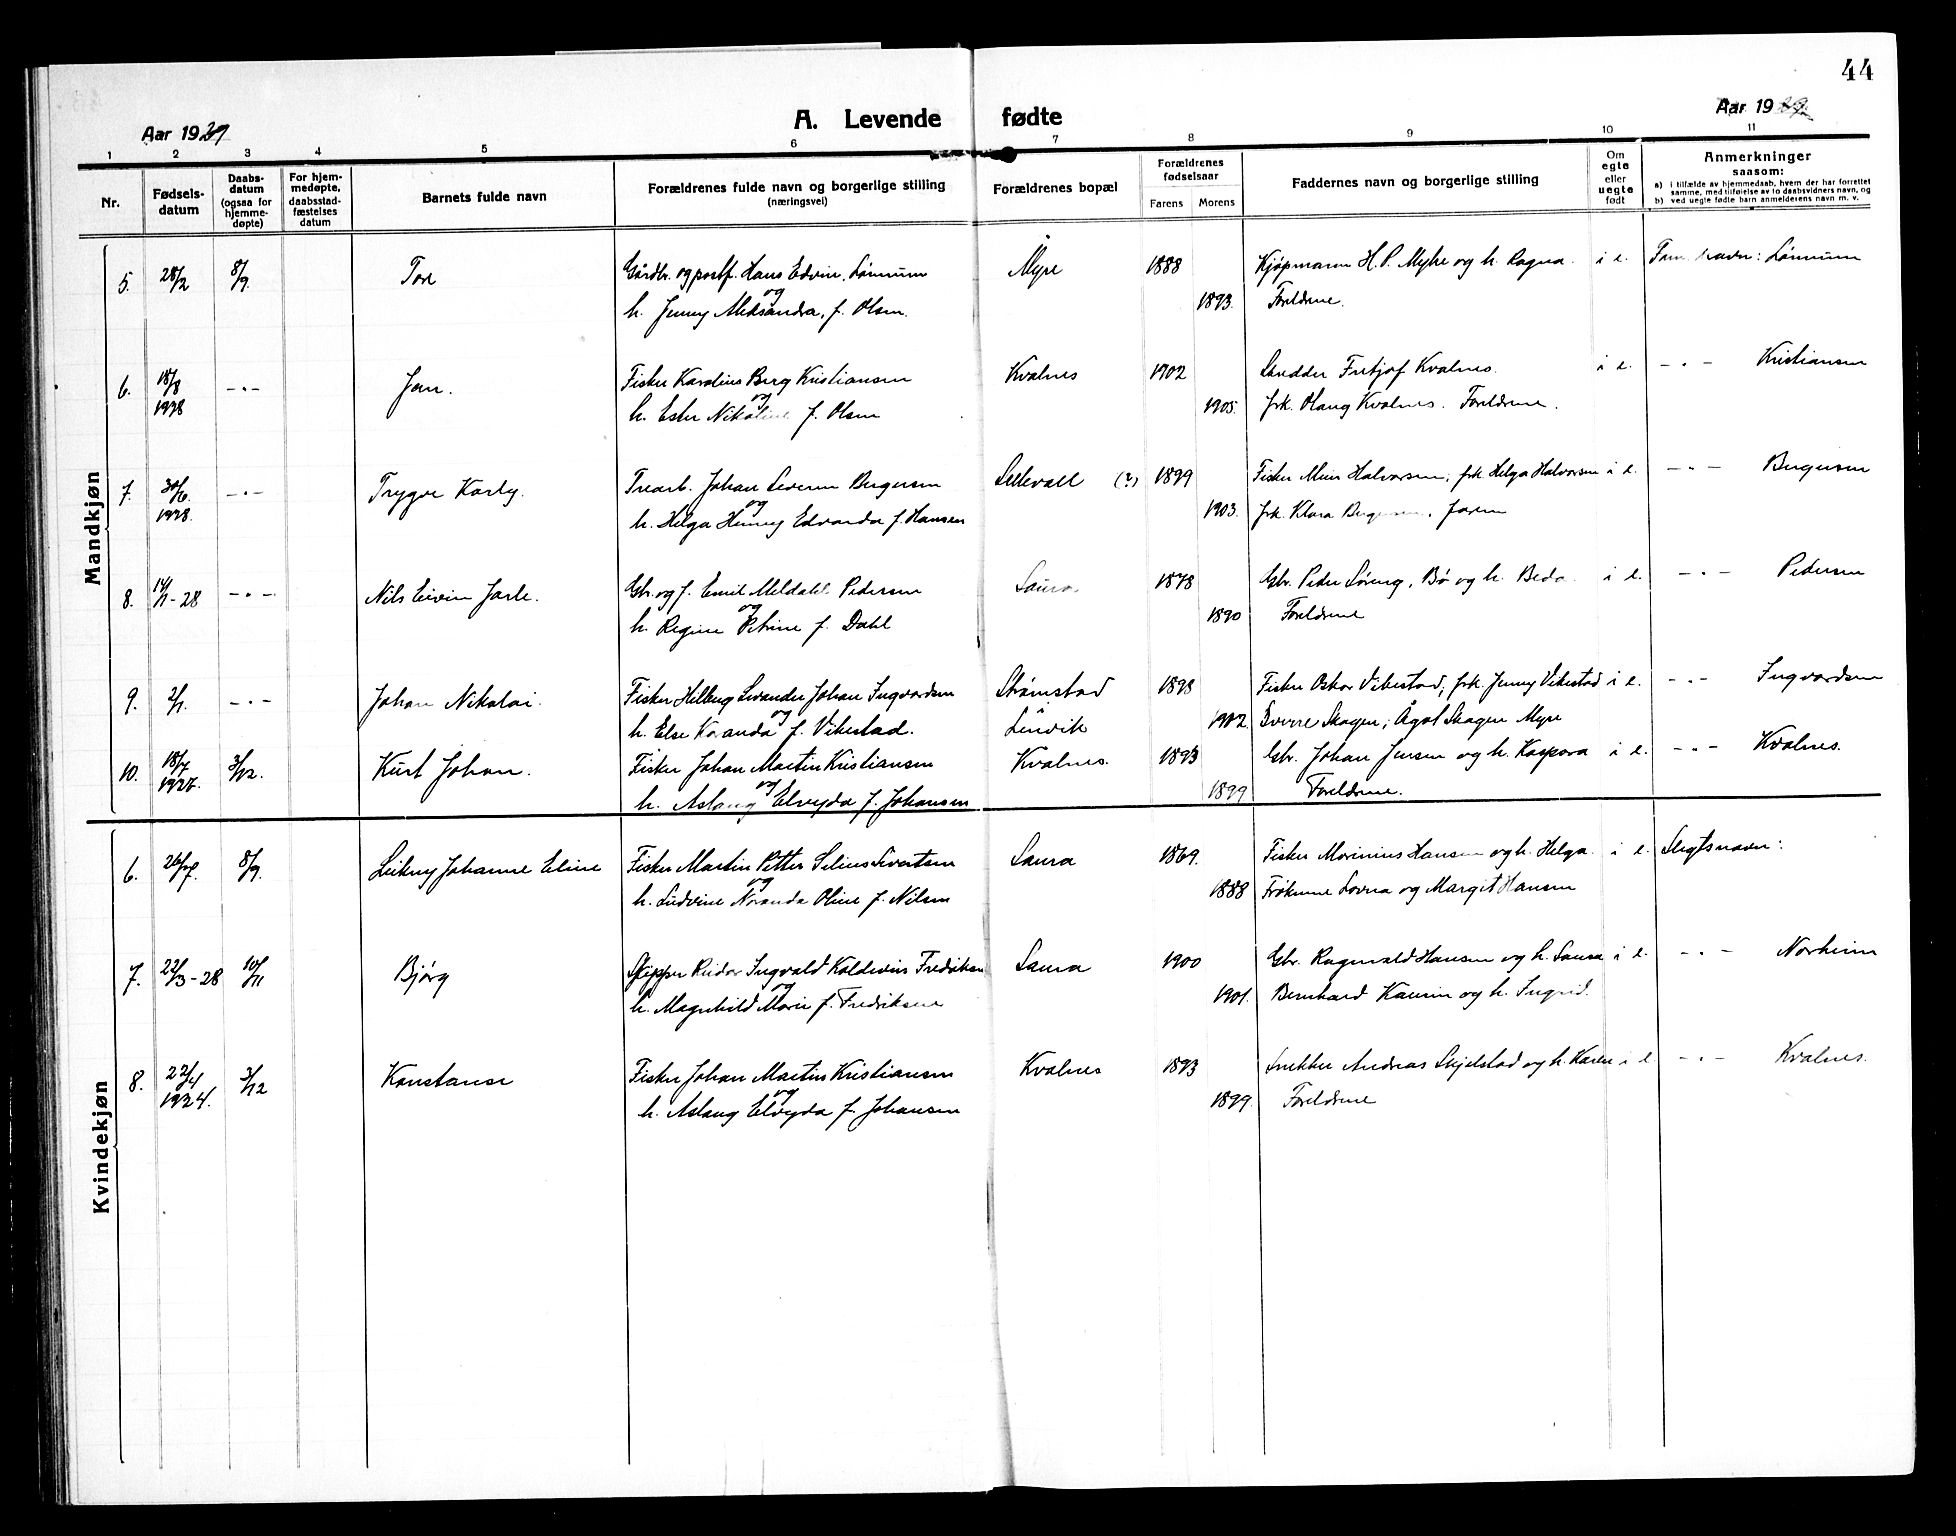 44
Aar 1929
A. Levende fødte
Aar 1929.
1 2 3 4 5 6 7 8 9 10 11
Nr.
Fødsels-
datum
Daabs-
datum
(ogsaa for
hjemme-
døpte)
For hjem-
medøpte,
daabsstad-
fæstelses
datum
Barnets fulde navn
Forældrenes fulde navn og borgerlige stilling
(næringsvei)
Forældrenes bopæl
Forældrenes
fødselsaar
Farens Morens
Faddernes navn og borgerlige stilling
Om
egte
eller
uegte
født
Anmerkninger
saasom:
a) i tilfælde av hjemmedaab, hvem der har forrettet
samme, med tilføielse av to daabsvidners navn, og
b) ved uegte fødte barn anmelderens navn m. v.
Mandkjøn
5. 28/2 8/9. Tore Gårdbr. og postf. Hans Edvin Lønnum Myre 1888 Kjøpmann H. P. Myhre og h. Ragna. i e. Fam. navn: Lønnum
og
h. Jenny Aleksandra, f. Olsen. 1893. Foreldrene.
6. 18/8 1928 - " - Jan. Fisker Karolius Berg Kristiansen Kvalnes 1902 Fritjof Kvalnes. i e. - " - Kristiansen
og
h. Ester Nikoline f. Olsen 1905. frk. Olaug Kvalnes. Foreldrene.
7. 30/6 1928. - " - Trygve Karly. Trearb. Johan Severin Bergersen Sellevoll (?) 1899 Fisker Halvorsen, frk. Helga Halvorsen i e. - " - Bergersen
og
h. Helga Henny Edvarda f. Hansen 1903. frk. Klara Bergersen, faren
8. 14/1-28 - " - Nils Eivin Jarle. Gbr. og f. Emil Meldahl Pedersen Saura 1878 Gbr. Peder Søreng, Bø og h. Beda. i e. - " - Pedersen
og
h. Regine Petrine f. Dahl 1890 Foreldrene
9. 2/1. - " - Johan Nikolai. Fisker Levander Johan Ingvardsen Strømstad 1898 Fisker Oskar Vikestad, frk. Jenny Vikestad i e. - " - Ingvardsen
og
h. Else Koranda f. Vikestad. 1902. Sverre Skagen, Ågot Skagen Myre
10. 18/7 1927. 3/12. Kurt Johan. Fisker Johan Martin Kristiansen Kvalnes. 1893 Gbr. Johan Jensen og h. Kaspara i e. - " - Kvalnes.
og
h. Aslaug Elvyda f. Johansen 1899 Foreldrene.
Kvindekjøn
6. 26/7. 8/9. Leikny Johanne Eline Fisker Martin Petter Selius Sivertsen Saura 1869. Fisker Marinius Hansen og h. Helga. i e. Slegtsnavn:
og
h. Ludvine Noranda Oline f. Nilsen 1888 Frøknene Lovna og Margit Hansen
7. 22/3-28 10/11 Bjørg Skipper Reidar Ingvald Koldevin Fredriksen Saura 1900 Gbr. Ragnvald Hansen og h. Laura i e. - " - Norheim
og
h. Magnhild Marie f. Fredriksen 1901. Bernhard og h. Ingrid.
8. 22/4 1924. 3/12 Konstanse Fisker Johan Martin Kristiansen Kvalnes 1893 Snekker Andreas Skjelstad og h. Karen i e. - " - Kvalnes.
og
h. Aslaug Elvyda f. Johansen 1899. Foreldrene